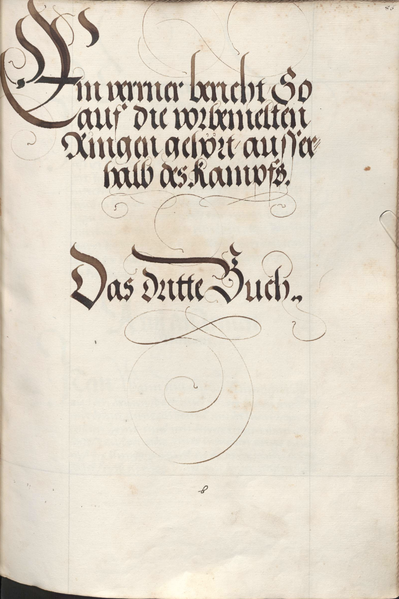 Ein verrner bericht So
auf die vorbemelten
Ringen gehört ausser-
halb des Kampfs.
Das dritte Buch.,